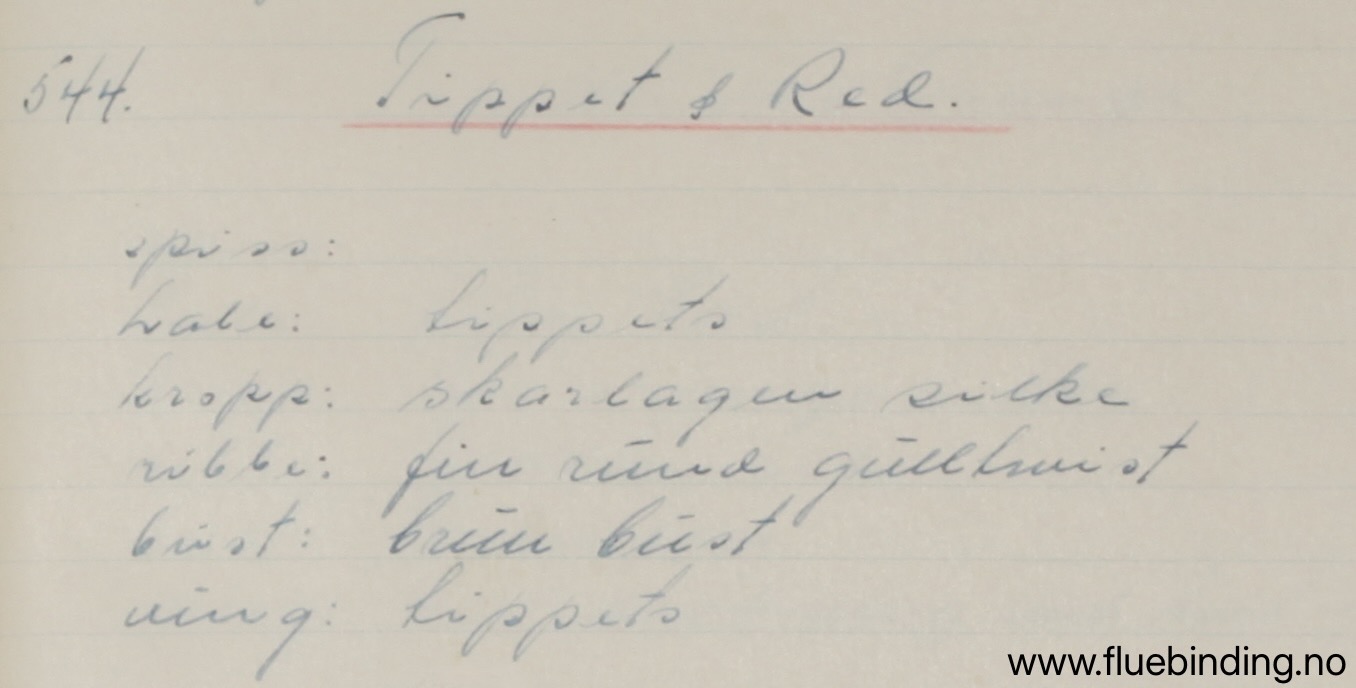 544. Tippet & Red.
spiss:
hale: tippets
kropp: skarlagen silke
ribbe: fin rund gulltwist
bust: brun bust
ving: tippets
www.fluebinding.no